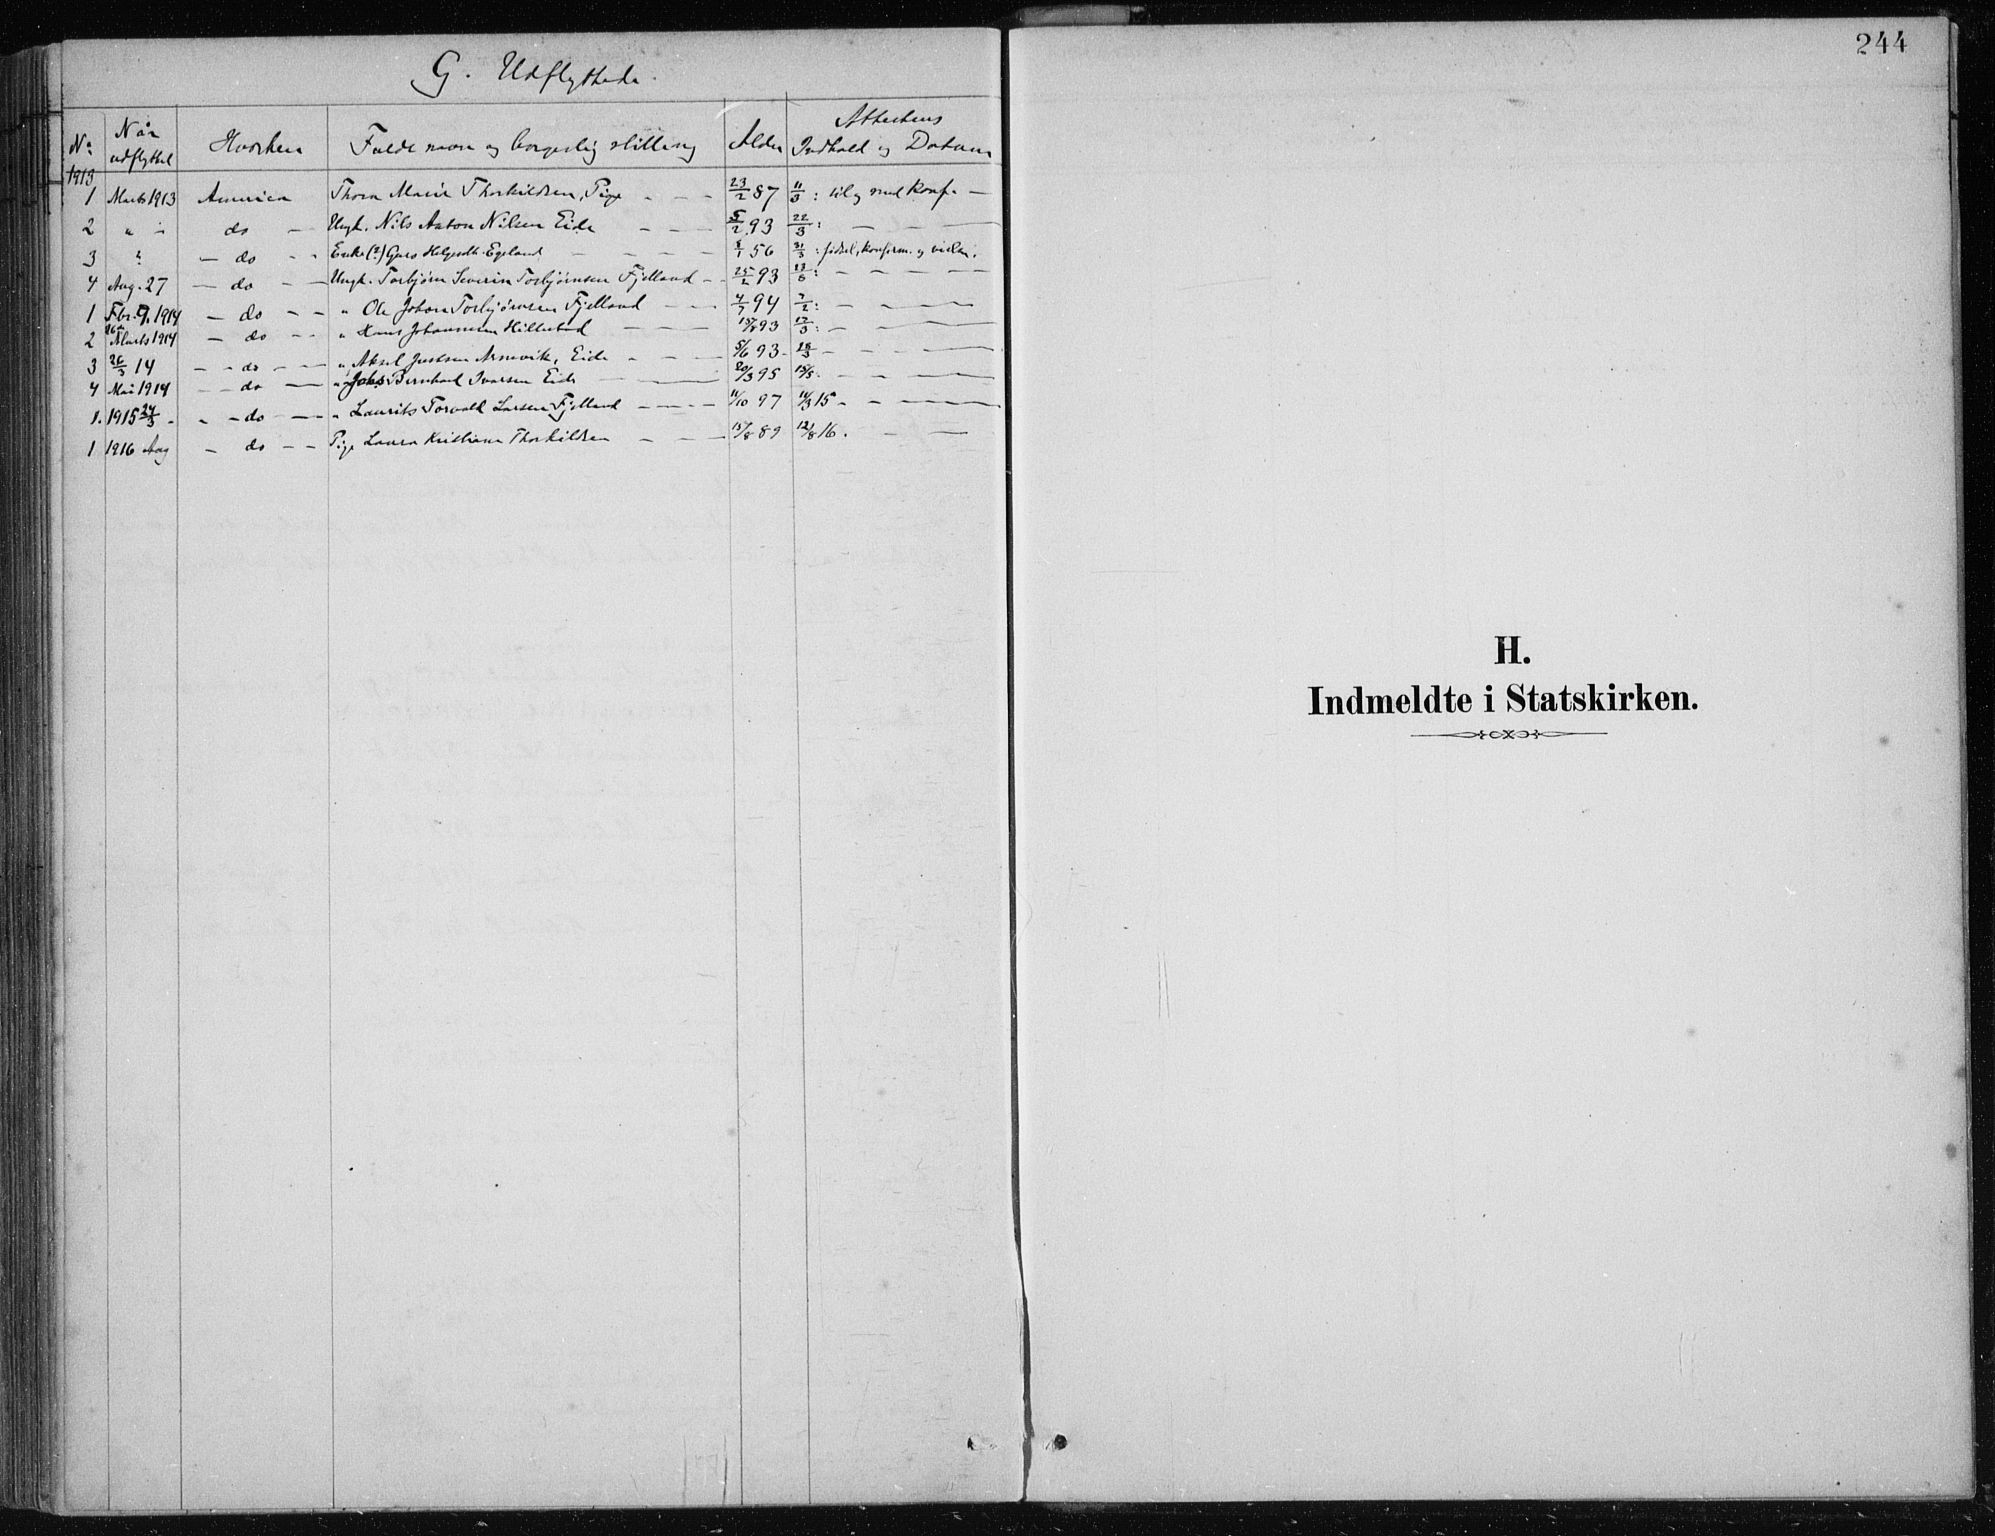 G. Udflyttede.
No. Når udflyttet Hvorhen Fulde navn og borgerlig stilling Alder Attestens Indhold og Datum
1913
1 Marts 1913 America Thora Marie Thorkildsen, Pige - - - 23/2 87 11/3: til og med Konf. -
2 " " do - Ungk. Nils Anton Nilsen Eide - - - 5/2 93 22/3: - - - -
3 " - do - - Enke (?) Guro Helgesdtr. Egeland - - - 8/1 56 31/3: fødsel, konfirm. og vielse.
4 Aug. 27 - do - Ungk. Torbjørn Severin Torbjørnsen Fjelland - - 25/2 93 23/8: - - - - -
1 Fbr. 9. 1914 - do - - " Ole Johan Torbjørnsen Fjelland - - 4/7 94 7/2: - - - -
2 Marts 1914 - do - " Hans Johannesen - - - 15/8 93 12/3: - - - -
3 26/3 14 - - do - - " Aksel Justsen Arnevik, Eide - - - 5/6 93 - 25/3 - - - -
4 Mai 1914 - - do - " Johs Bernhard Ivarsen Eide - - 20/3 95 15/5. - - - -
1. 1915 24/3 - - - do - - " Laurits Torvald Larsen Fjelland - - - 11/10 97 11/3 15 - - - -
1 1916 Aug - do - - Pige Laura Kristiane Thorkildsen - - - 15/8 89 12/8 16. - -
244
H.
Indmeldte i Statskirken.